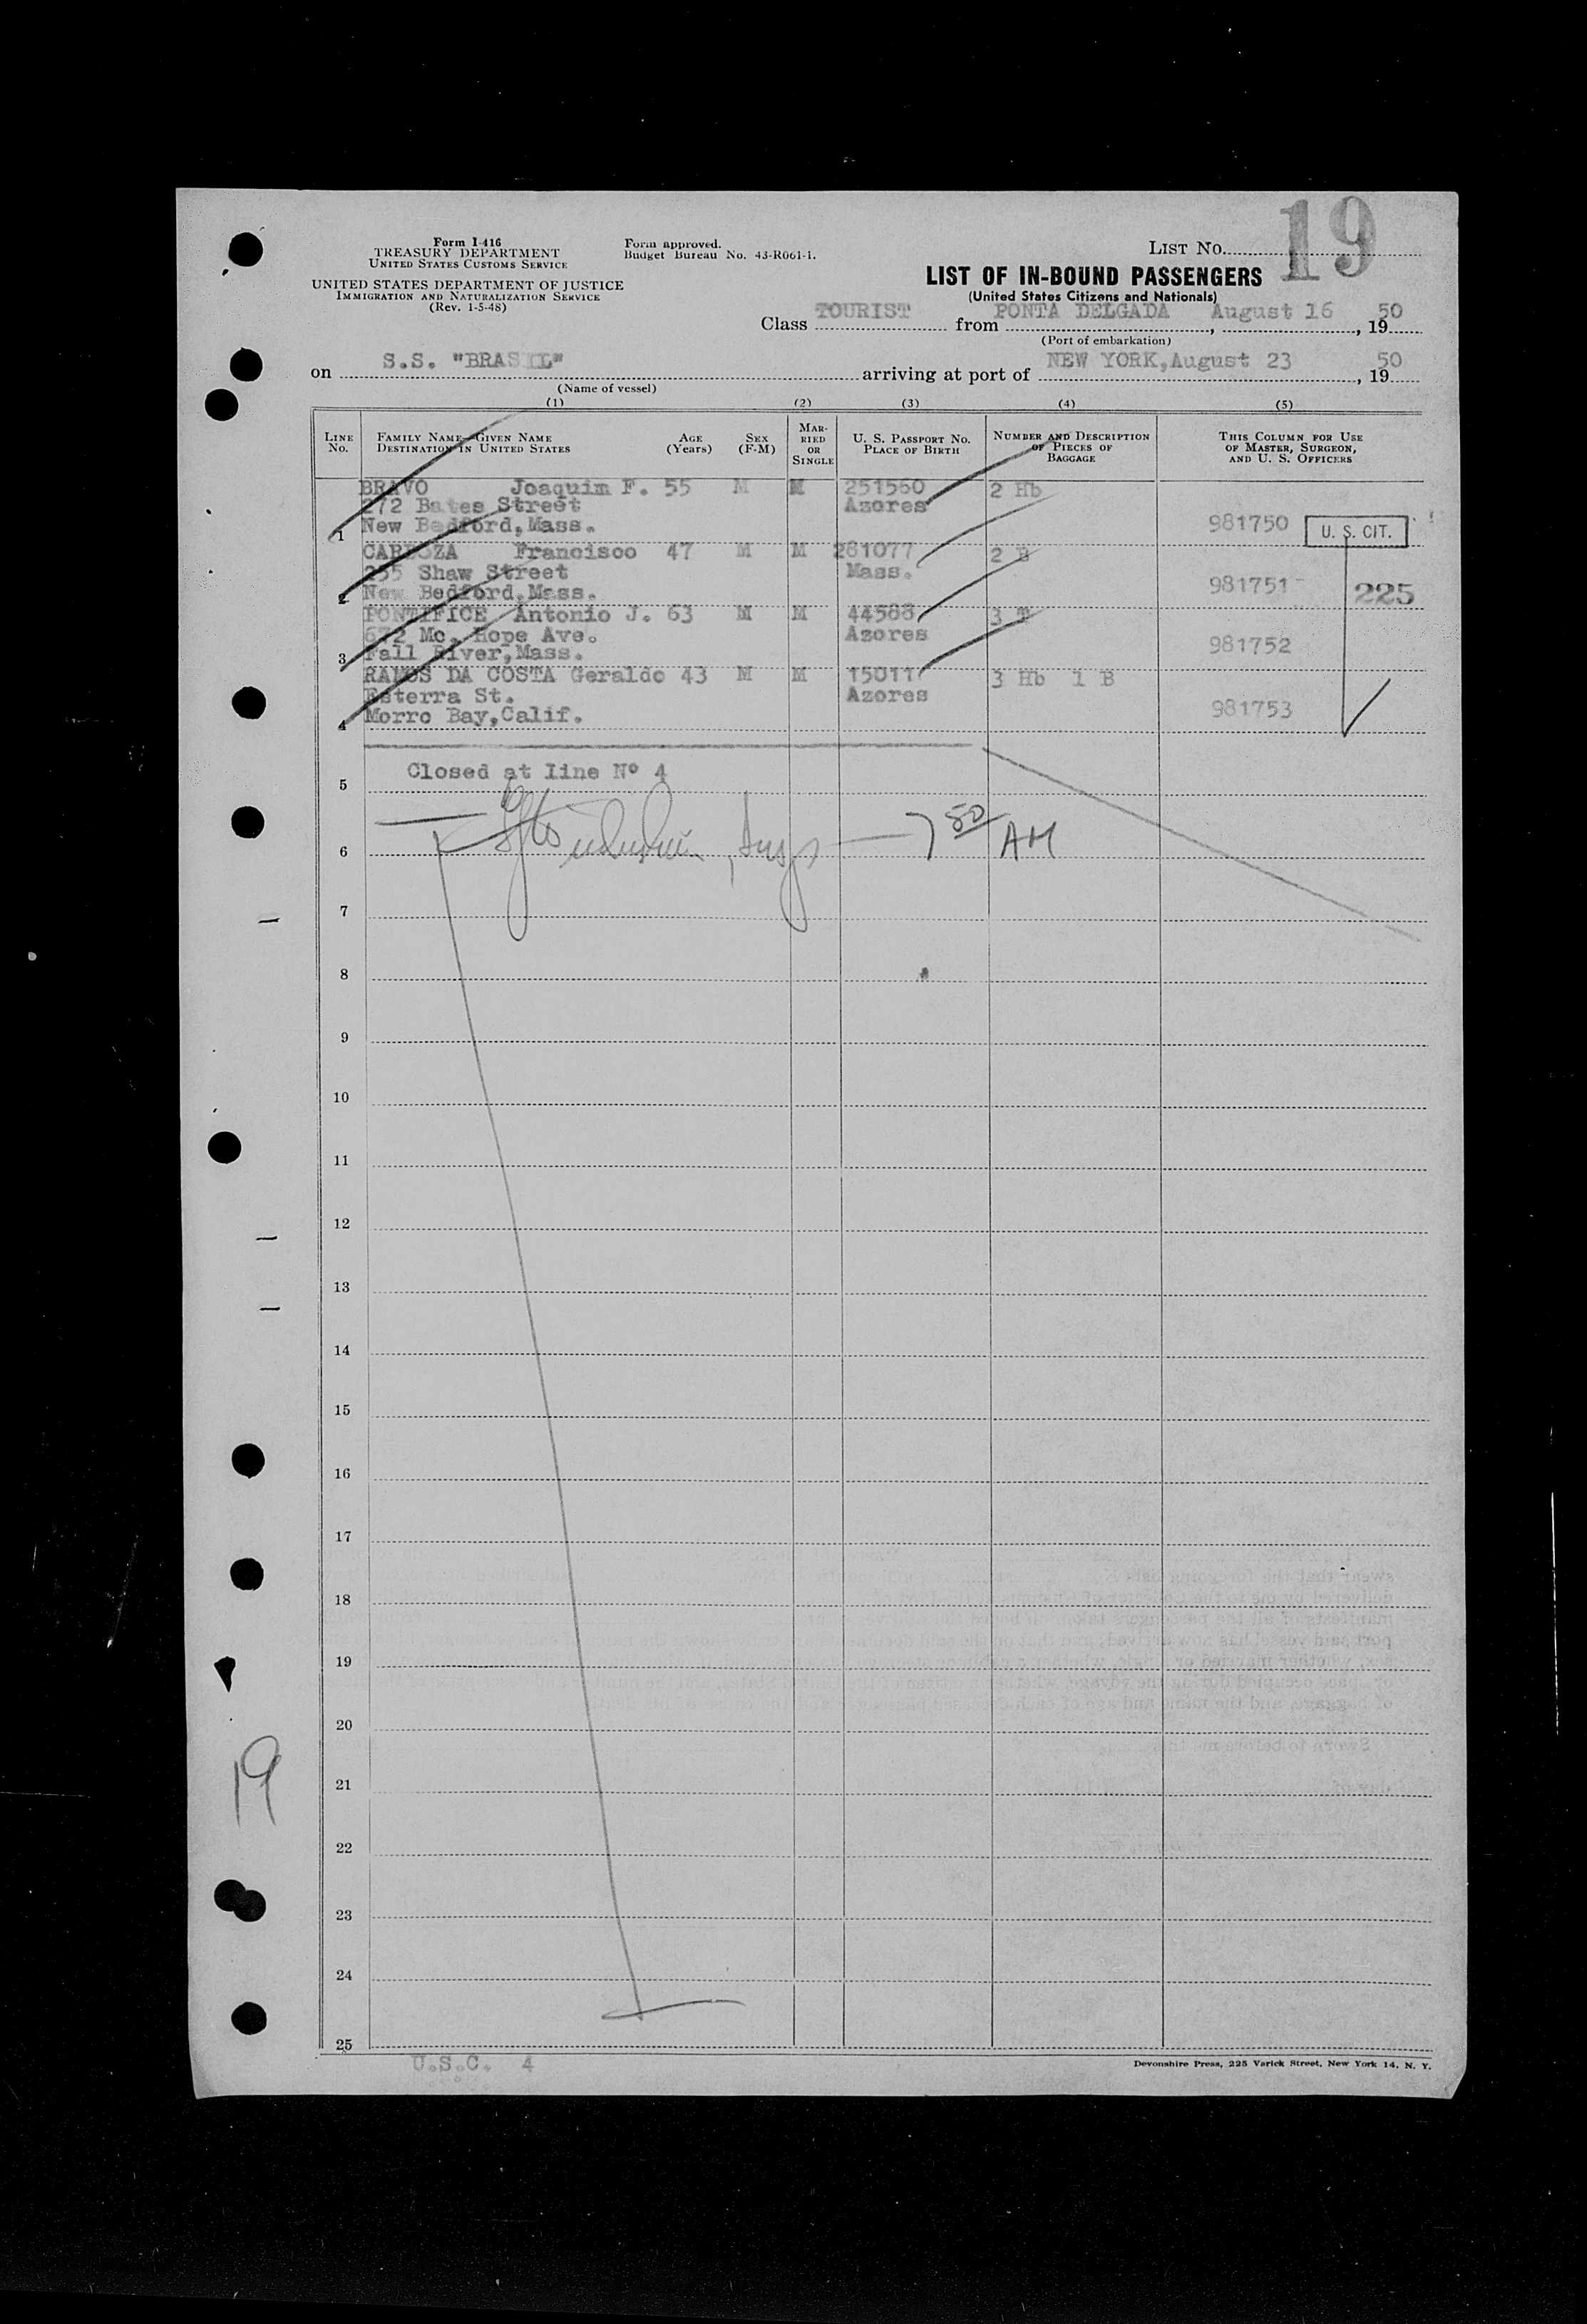 Form I-416
TREASURY DEPARTMENT
UNITED STATES CUSTOMS SERVICE
UNITED STATES DEPARTMENT OF JUSTICE
IMMIGRATION AND NATURALIZATION SERVICE
(Rev. 1-5-48)
Form approved.
Budget Bureau No. 43-R061-1.
LIST NO. 19
LIST OF IN-BOUND PASSENGERS
(United States Citizens and Nationals)
Class TOURIST from PONTA DELGADA, August 16, 1950
(Port of embarkation)
on S.S. "BRASIL" arriving at port of NEW YORK, August 23, 1950
(Name of vessel)
(1) (2) (3) (4) (5)
LINE NO. FAMILY NAME—GIVEN NAME DESTINATION IN UNITED STATES AGE (Years) SEX (F-M) MARRIED OR SINGLE U. S. PASSPORT NO. PLACE OF BIRTH NUMBER AND DESCRIPTION OF PIECES OF BAGGAGE THIS COLUMN FOR USE OF MASTER, SURGEON, AND U. S. OFFICERS
BRAVO Joaquim F. 55 M M 251560 2 Hb
272 Bates Street Azores
1 New Bedford, Mass. 981750 U. S. CIT.
CARDOZA Francisco 47 M M 281077 2 B
Shaw Street Mass.
2 New Bedford, Mass. 981751 225
PONTIFICE Antonio J. 63 M M 44588 3 T
672 Mc. Hope Ave. Azores
3 Fall River, Mass. 981752
RAMOS DA COSTA Geraldo 43 M M 15011 3 Hb 1 B
Esterra St. Azores
4 Morro Bay, Calif. 981753
Closed at line Nº 4
5
6 7 50 AM
7
8
9
10
11
12
13
14
15
16
17
18
19
20
21
22
23
24
25
19
U.S.C. 4
Devonshire Press, 225 Varick Street, New York 14, N. Y.